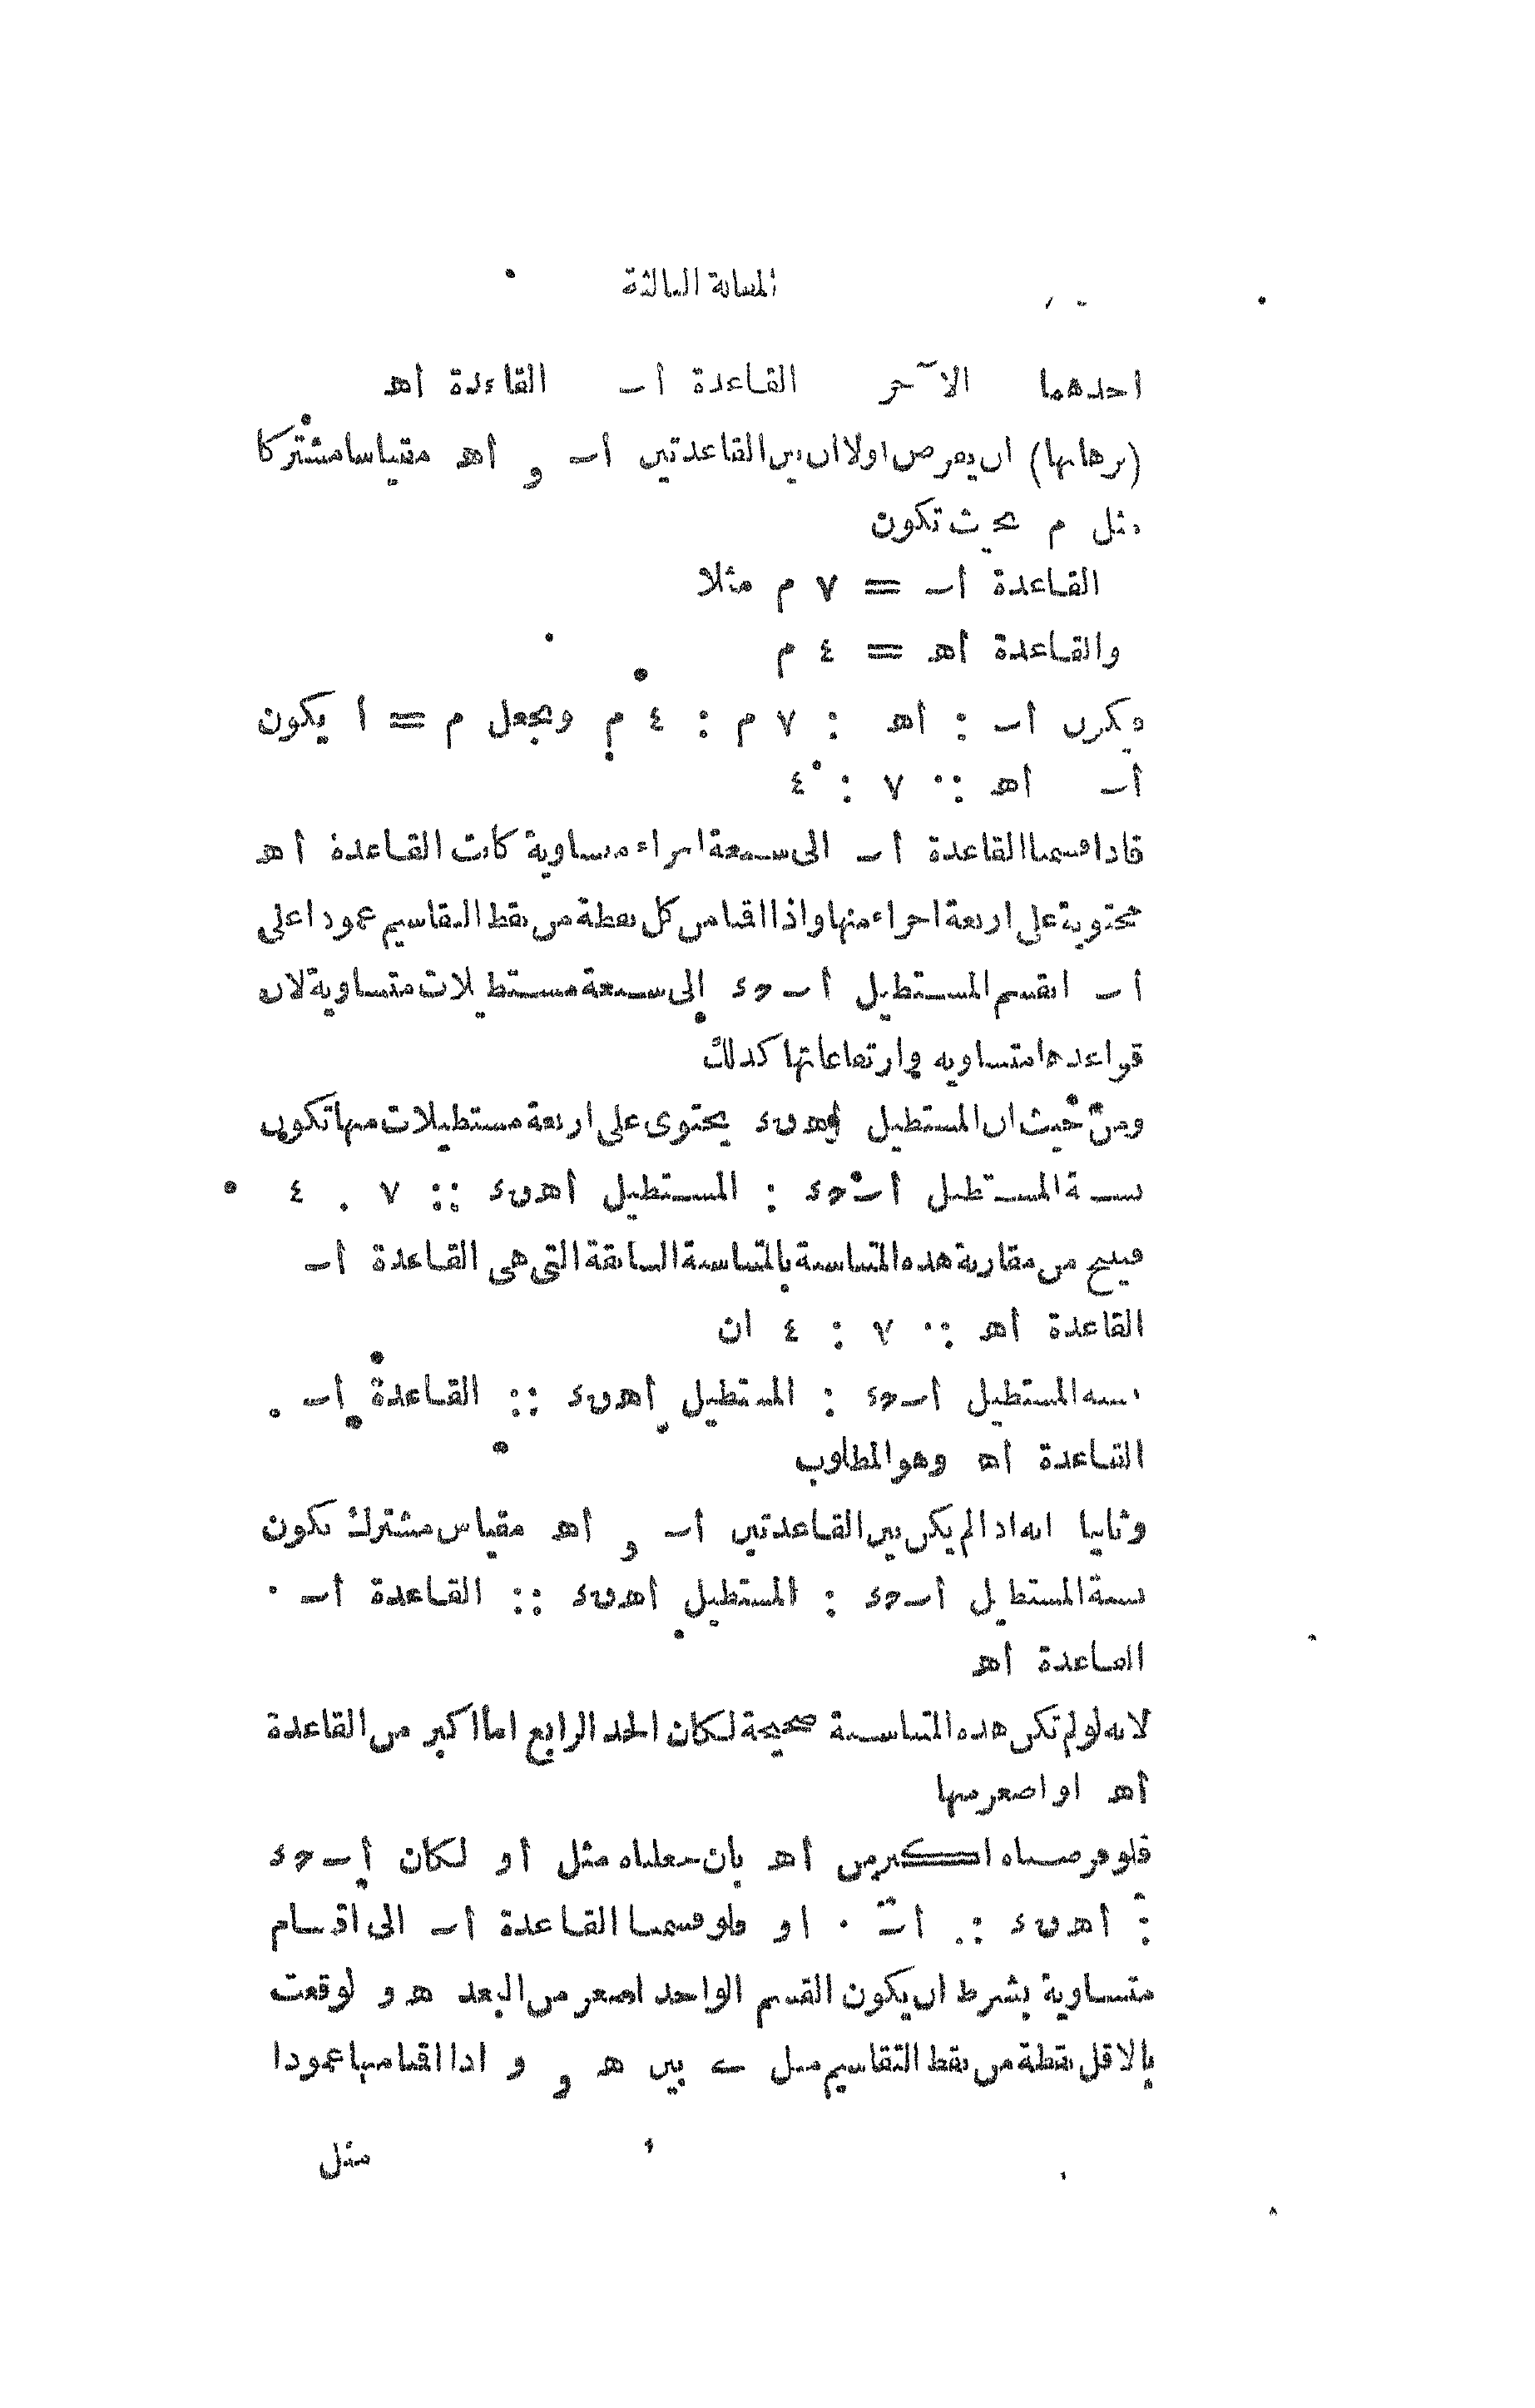 المقالة الثالثة
احدهما الآخر القاعدة أب القاعدة أهـ
(برهانها) ان يفرض اولا ان بين القاعدتين أب و أهـ مقياسا مشتركا
مثل م بحيث تكون
القاعدة أب = ٧ م مثلا
والقاعدة أهـ = ٤ م
فيكون أب : أهـ : ٧ م : ٤ م وبجعل م = أ يكون
أب أهـ :: ٧ : ٤
فاذا قسمنا القاعدة أب الى سبعة اجزاء متساوية كانت القاعدة أهـ
محتوية على اربعة اجزاء منها واذا اقمنا من كل نقطة من نقط التقاسيم عمودا على
أب انقسم المستطيل أب حء إلى سبعة مستطيلات متساوية لان
قواعدها متساويه وارتفاعاتها كذلك
ومن حيث ان المستطيل أهـ ى ء يحتوى على اربعة مستطيلات منها تكون
نسبة المستطيل أب حء : المستطيل أهـ ى ء :: ٧ . ٤
فينتج من مقارنة هذه المتناسبة بالمتناسبة السابقة التى هى القاعدة أب
القاعدة أهـ :: ٧ : ٤ ان
نسبه المستطيل أب حء : المستطيل أهـ ى ء :: القاعدة أب .
القاعدة أهـ وهو المطلوب
وثانيا انه اذا لم يكن بين القاعدتين أب و أهـ مقياس مشترك تكون
نسبة المستطيل أب حء : المستطيل أهـ ى ء :: القاعدة أب .
القاعدة أهـ
لانه لو لم تكن هذه المتناسبة صحيحة لكان الحد الرابع اما اكبر من القاعدة
أهـ او اصغر منها
فلو فرضناه اكبر من أهـ بان جعلناه مثل أو لكان أب حء
: أهـ ى ء :: أب . او فلو قسمنا القاعدة أب الى اقسام
متساوية بشرط ان يكون القسم الواحد اصغر من البعد هـ و لوقعت
بالاقل نقطة من نقط التقاسيم مثل ے بين هـ و و اذا اقمنا منها عمودا
مثل